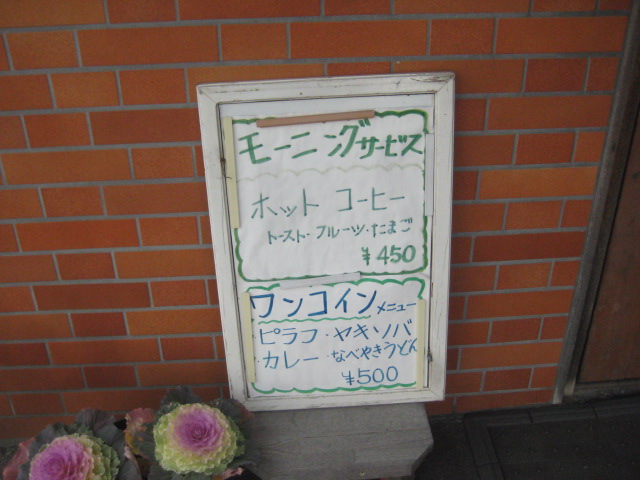 モーニングサービス
ホット コーヒー
トースト・フルーツ・たまご
¥450
ワンコインメニュー
ピラフ・ヤキソバ
カレー・なべやきうどん
¥500